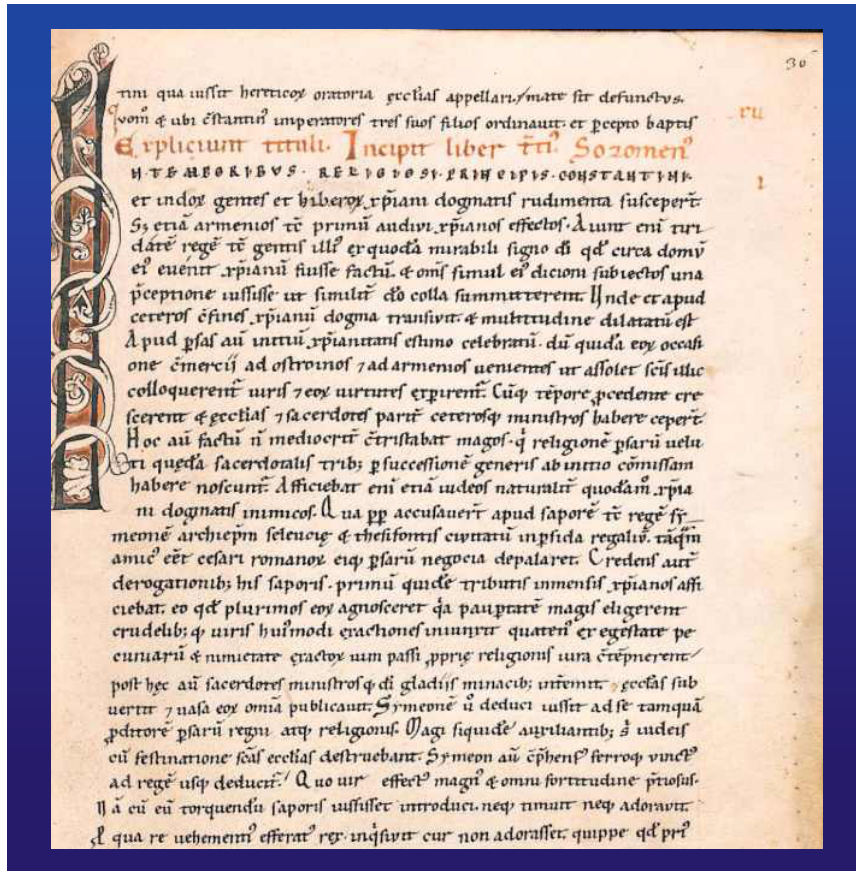 30
tini qua iussit hereticoꝝ oratoria ęccl̄ias appellari, ⁊mate sit defunctus.
Quom̊ & ubi c̄stantinꝰ imperatores tres suos filios ordinauit. et ꝑcepto baptis
ru
Expliciunt tituli. Incipit liber t̄tiꝰ Sozomeni
N TEMPORIBVS. RELIGIOSI PRINCIPIS. CONSTANTINI.
et indoꝝ gentes et hiberoꝝ xp̄iani dogmatis rudimenta susceper̄t.
Sꝫ etiā armenios tc̄ primū audiui xp̄ianos effectos. Aiunt eni tiri
datē regē tc̄ gentis illiꝰ ex quodā mirabili signo di qd̄ circa domū
eiꝰ euenit xp̄ianū fuisse factū. & om̄s simul eiꝰ dicioni subiectos una
p̄ceptione iussisse ut similit̄ d̄o colla summitterent. Unde et apud
ceteros c̄fines xp̄ianū dogma transiuit. & multitudine dilatatū est
Apud ꝑsas aū initiū xp̄ianitatis estimo celebratū. dū quidā eoꝝ occasi
one c̄mercij ad ostroinos ⁊ ad armenios uenientes ut assolet scis illic
colloquerent̄ uiris ⁊ eoꝝ uirtutes exꝑirent̄. Cūqꝫ tēpore ꝓcedente cre
scerent & ęccl̄ias ⁊ sacerdotes parit̄ ceterosqꝫ ministros habere ceper̄t.
Hoc aū factū n̄ mediocrit̄ c̄tristabat magos. q̇ religionē ꝑsarū uelu
ti quędā sacerdotalis tribꝫ ꝑ successionē generis ab initio cōmissam
habere noscunt̄. Afficiebat eni etiā iudeos naturalit̄ quodām̊ xp̄ia
ni dogmatis inimicos. Qua ꝓp accusauer̄t apud saporē tc̄ regē sy
meonē archiep̄m seleucię & thesifontis ciuitatū in ꝑsida regaliū. tāq̄m
amicꝰ eēt cesari romanoꝝ eiqꝫ ꝑsarū negocia depalaret. Credens aut̄
derogationibꝫ his saporis. primū quidē tributis inmensis xp̄ianos affi
ciebat. eo qd̄ plurimos eoꝝ agnosceret q̇a pauꝑtatē magis eligerent
crudelibꝫqꝫ uiris huiꝰmodi exactiones iniunxit quatenꝰ ex egestate pe
cuniarū & nimietate exactoꝝ uim passi ꝓprię religionis iura c̄tēpnerent
post hęc aū sacerdotes ministrosqꝫ di gladijs minacibꝫ intemit. ęccl̄as sub
uertit ⁊ uasa eoꝝ omīa publicauit. Symeonē ů deduci iussit ad se tamquā
ꝓditorē ꝑsarū regni atqꝫ religionis. Magi siquidē auxiliantibꝫ s̄ iudeis
cū festinatione scās eccl̄ias destruebant. Symeon aū c̄p̄hensꝰ ferroqꝫ uinctꝰ
ad regē usqꝫ deducit̄. Quo uir effectꝰ magnꝰ & omni fortitudine p̄tiosus.
Nā cū eū torquendū saporis iussisset introduci. neqꝫ timuit neqꝫ adorauit
qua re uehementi efferatꝰ rex. inq̇siuit cur non adorasset. quippe qd̄ priꝰ